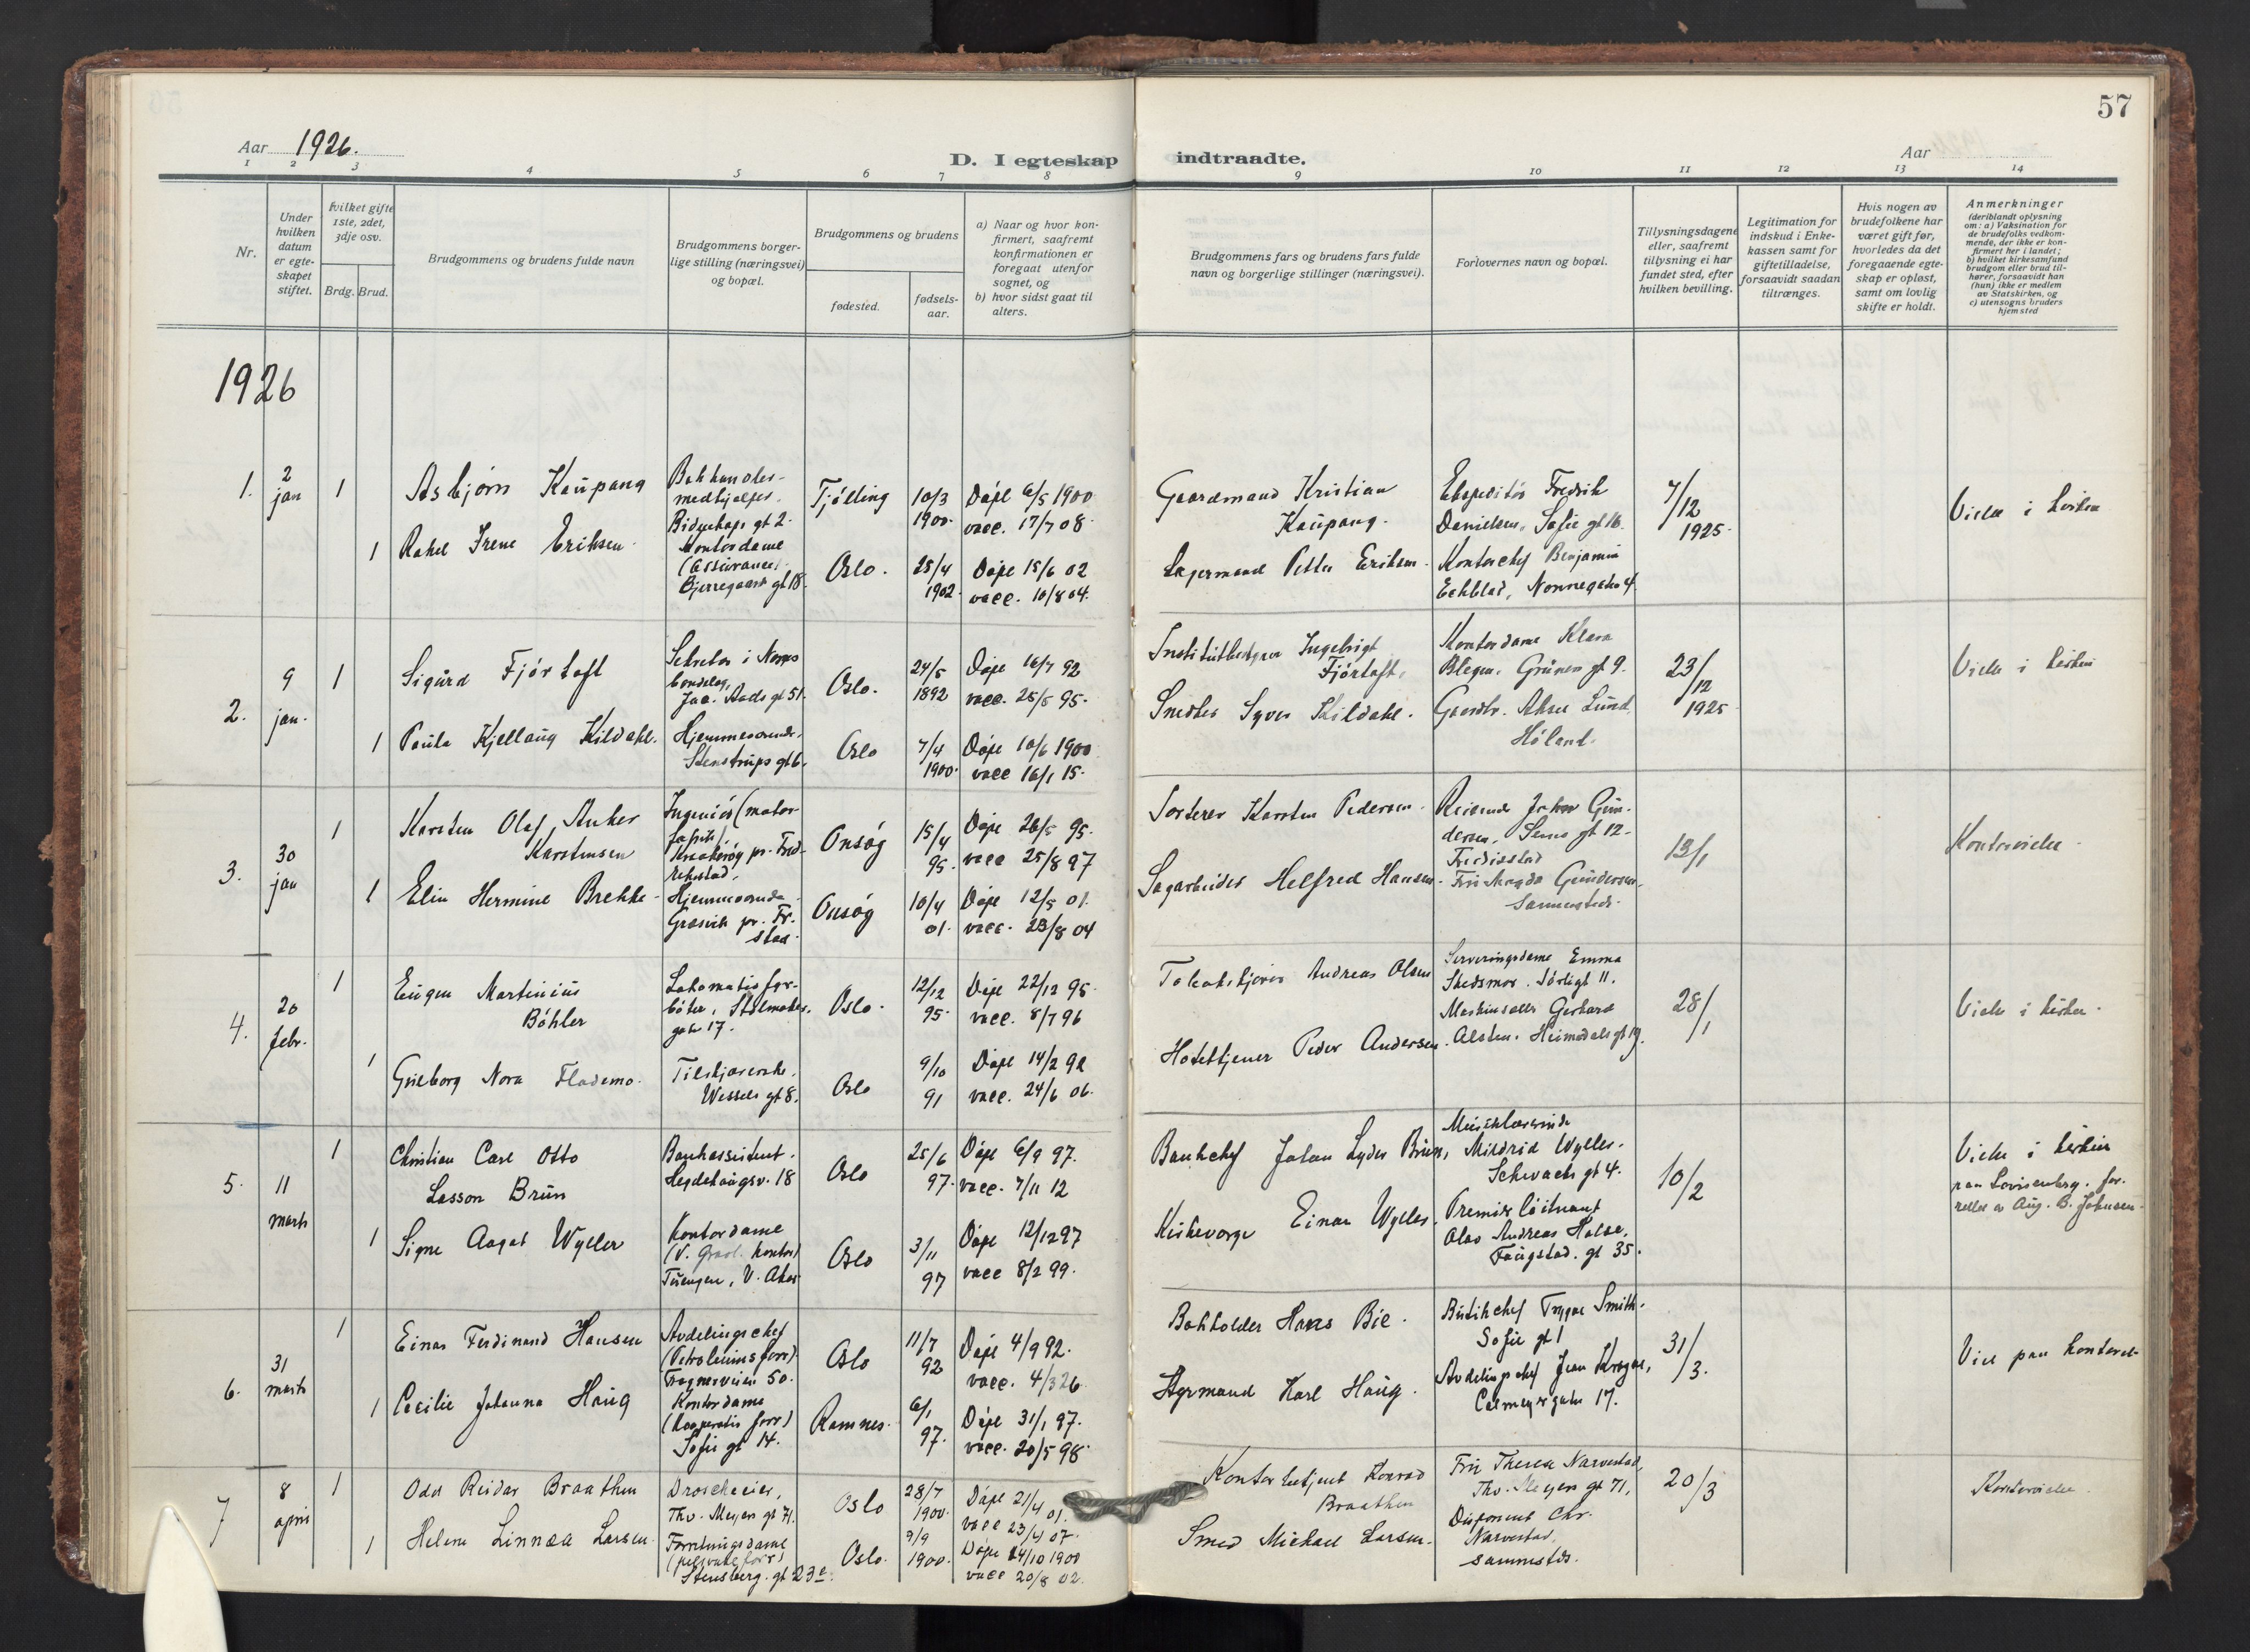 57
Aar 1926.
D. I egteskap indtraadte.
Aar
1 2 3 4 5 6 7 8 9 10 11 12 13 14
Nr.
Under hvilken datum er egte-skapet stiftet.
hvilket gifte 1ste, 2det, 3dje osv.
Brdg. Brud.
Brudgommens og brudens fulde navn
Brudgommens borger-
lige stilling (næringsvei)
og bopæl.
Brudgommens og brudens
fødested.
fødsels-
aar.
a) Naar og hvor kon-
firmert, saafremt
konfirmationen er
foregaat utenfor
sognet, og
b) hvor sidst gaat til
alters.
Brudgommens fars og brudens fars fulde
navn og borgerlige stillinger (næringsvei).
Forlovernes navn og bopæl.
Tillysningsdagene
eller, saafremt
tillysning ei har
fundet sted, efter
hvilken bevilling.
Legitimation for
indskud i Enke-
kassen samt for
giftetilladelse,
forsaavidt saadan
tiltrænges.
Hvis nogen av
brudefolkene har
været gift før,
hvorledes da det
foregaaende egte-
skap er opløst,
samt om lovlig
skifte er holdt.
Anmerkninger
(deriblandt oplysning
om: a) Vaksination for
de brudefolks vedkom-
mende, der ikke er kon-
firmert her i landet;
b) hvilket kirkesamfund
brudgom eller brud til-
hører, forsaavidt han
(hun) ikke er medlem
av Statskirken, og
c) utensogns bruders
hjemsted
1926
1.
2
jan
1
Asbjørn Kaupang
Bokhandler-
medhjelper.
gt 2.
Tjølling
10/3
1900.
Døpt 6/5 1900
vacc. 17/7 08.
Gaardmand Kristian
Kaupang.
Ekspeditør Fredrik
Danielsen, Sofie gt 16.
7/12
1925.
Viede i kirken
1
Rakel Irene Eriksen.
Kontordame
(Assurance)
Bjerregaards gt 18.
Oslo.
25/4
1902.
Døpt 15/6 02
vacc. 10/8 04.
Lagermand Petter Eriksen.
Kontorchef Benjamin
Ekblad, Nonnegaten 4.
2.
9
jan.
1
Sigurd Fjørtoft
Sekretær i Norges
bondelag,
Jac. Aalls gt 51.
Oslo.
24/5
1892
Døpt 16/7 92
vacc. 25/5 95.
Institutbestyrer Ingebrigt
Fjørtoft,
Kontordame Klara
Blegen, Grüners gt 9.
23/12
1925
Viede i kirken
1
Paula Kjellaug Kildahl.
Hjemmeværende.
Stenstrups gt 6.
Oslo
7/4
1900.
Døpt 10/6 1900
vacc 16/1 15.
Snedker Syver Kildahl.
Gaardbr. Aksel Lund,
Høland.
3.
30
jan
1
Karsten Olaf Anker
Karstensen
Ingeniør (motor
fabrik)
Kraakerøy pr. Fred-
rikstad.
Onsøy
15/4
95.
Døpt 26/5 95.
vacc 25/8 97
Sorterer Karsten Pedersen.
Reisende Johan Gun-
dersen, gt 12.
Fredrikstad
13/1
Kontorvielse
1
Elin Hermine Brekke
Hjemmeværende
Gressvik pr. Fr.
stad.
Onsøy
10/4
01.
Døpt 12/5 01.
vacc. 23/8 04
Sagarbeider Helfred Hansen.
Fru Magda Gundersen,
sammesteds.
4.
20
febr.
1
Eugen Martinius
Bøhler
Lokomotivfyr-
bøter, Stolmaker-
gaten 17.
Oslo.
12/12
95.
Døpt 22/12 95.
vacc. 8/7 96
Andreas Olsen
Serveringsdame Emma
Skedsmo. Sørligt 11.
28/1
Viede i kirken.
1
Gueborg Nora Flademo.
Tilskjærerske.
Wessels gt 8.
Oslo
9/10
91
Døpt 14/2 92
vacc. 24/6 06.
Hoteltjener Peder Andersen.
Gerhard
Alsten. Heimdals gt 19.
5.
11
marts
1
Christian Carl Otto
Lasson Brun
Bankassistent.
Hegdehaugsv. 18
Oslo
25/6
97.
Døpt 6/9 97.
vacc. 7/11 12
Bankchef Johan Lyder Brun,
Musiklærerinde
Mildrid Wyller.
Schwachs gt 4.
10/2
Viede i kirken
paa Lovisenberg. for-
rettet av Aug. B. Johnsen.
1
Signe Aagot Wyller
Kontordame
(V. kontor)
Tuengen, V. Aker
Oslo
3/11
97
Døpt 12/12 97
vacc 8/2 99.
Kirkeverge Einar Wyller.
Premierløitnant
Olav Andreas Halse,
Faugstad. gt 35.
6.
31
marts
1
Einar Ferdinand Hansen
Avdelingschef
(Petroleumsforr).
Frognerveien 50.
Oslo
11/7
92
Døpt 4/9 92.
vacc. 4/3 26.
Bokholder Hans Bie.
Butikchef Trygve Smith.
Sofie gt 1
31/3.
Viet paa kontoret
1
Cecilie Johanna Haug
Kontordame
(kooperativ forr)
Sofie gt 14.
Ramnes.
6/1
97.
Døpt 31/1 97.
vacc. 20/5 98.
Styrmand Karl Haug.
Avdelingschef Jean Kroger,
Calmeyergaten 17.
7
8
april
1
Odd Reidar Braathen
Droscheeier,
Thv. Meyers gt 71.
Oslo
28/7
1900.
Døpt 21/4 01.
vacc 23/4 07.
Kontorbetjent Konrad
Braathen
Fru Theresa Narvestad,
Thv. Meyers gt 71,
20/3
Kontorvielse.
1
Helene Linnæa Larsen.
Forretningsdame
(pelsvareforr)
Stensberg. gt 23c.
Oslo.
9/9
1900.
Døpt 14/10 1900
vacc 20/8 02.
Smed Michael Larsen.
Disponent Chr.
Narvestad,
sammesteds.